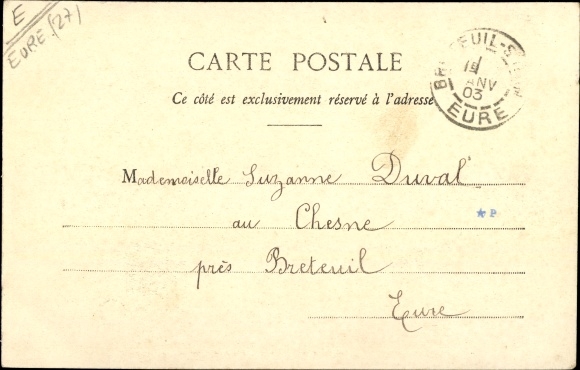 E
EURE (27)
CARTE POSTALE
Ce côté est exclusivement réservé à l'adresse
EURE
03
Mademoiselle Suzanne Duval
au Chesne
★ P
près Breteuil
Eure